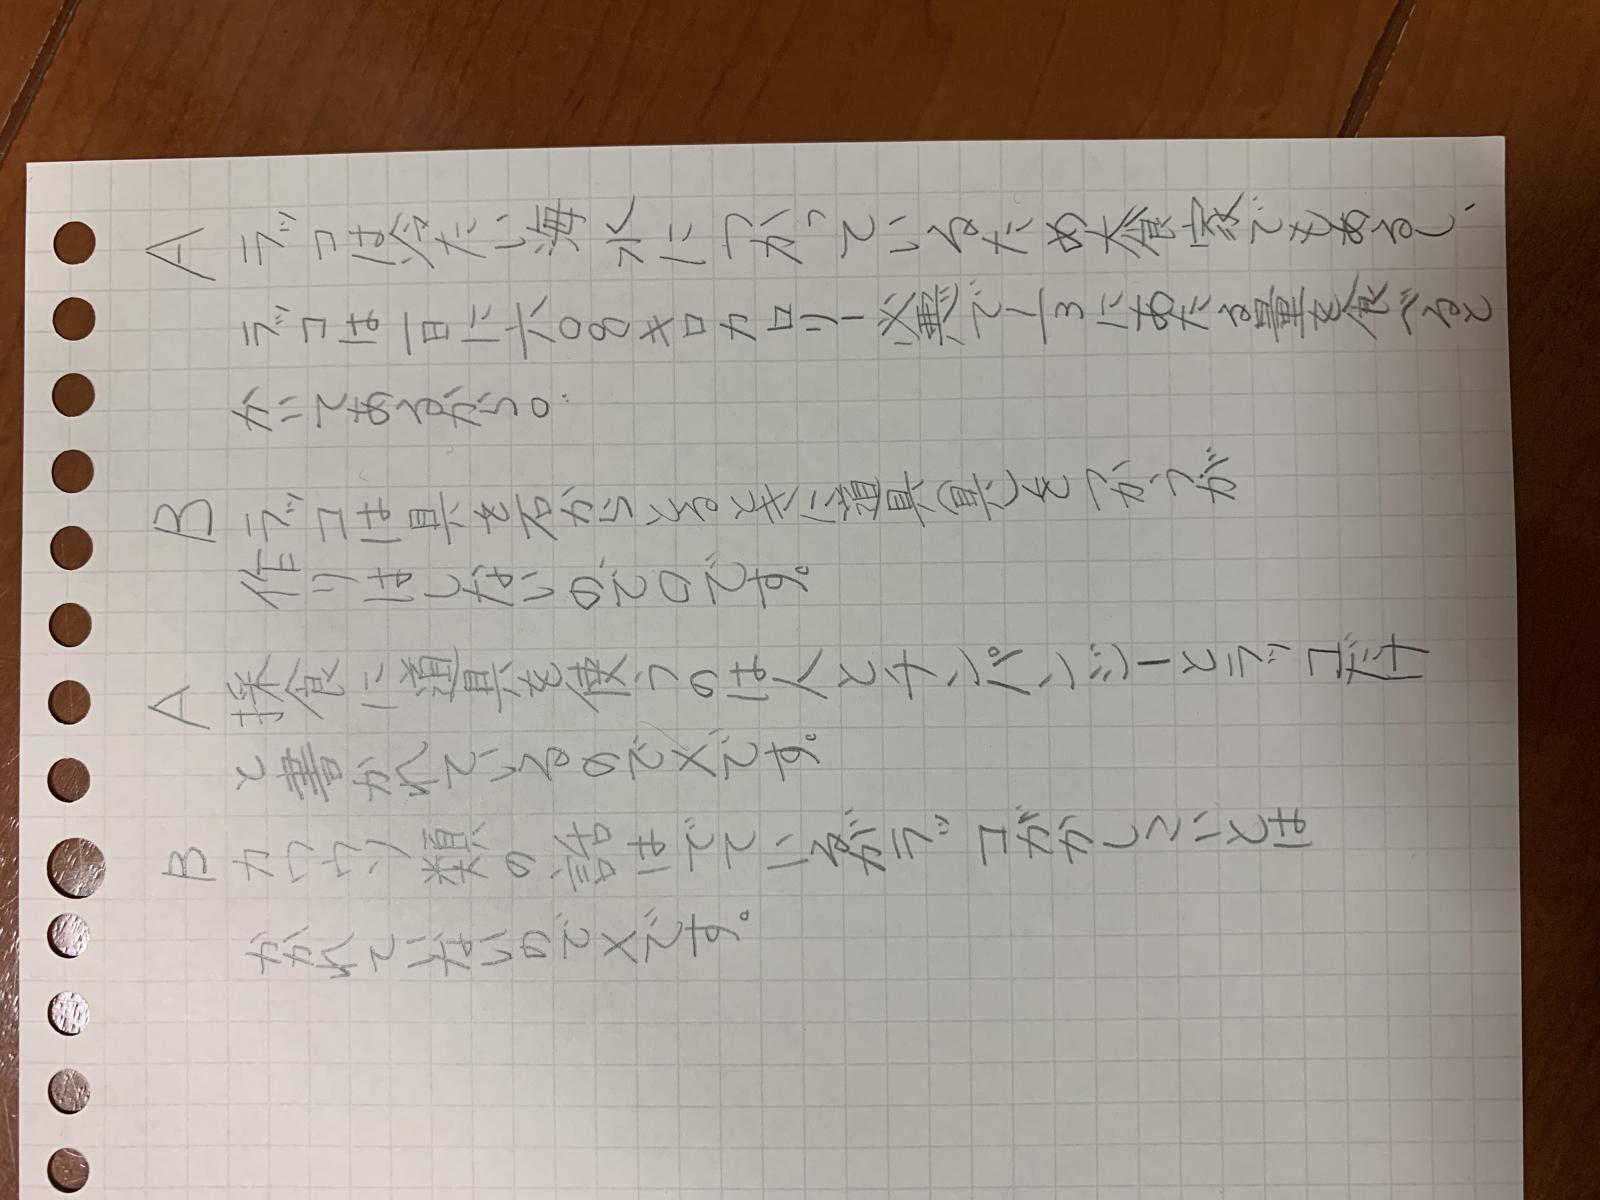 A ラッコは冷たい海水につかっているため大食家でもあるし、
ラッコは一日に六〇〇キロカロリー必要で1/3にあたる量を食べると
かいてあるから。
B ラッコは貝を石から道具をつかうが
作りはしないので〇です。
A 採食に道具を使うのは人とチンパンジーとラッコだけ
と書かれているので×です。
B カワウソ類の話はでているがラッコがかしこいとは
かかれていないので×です。